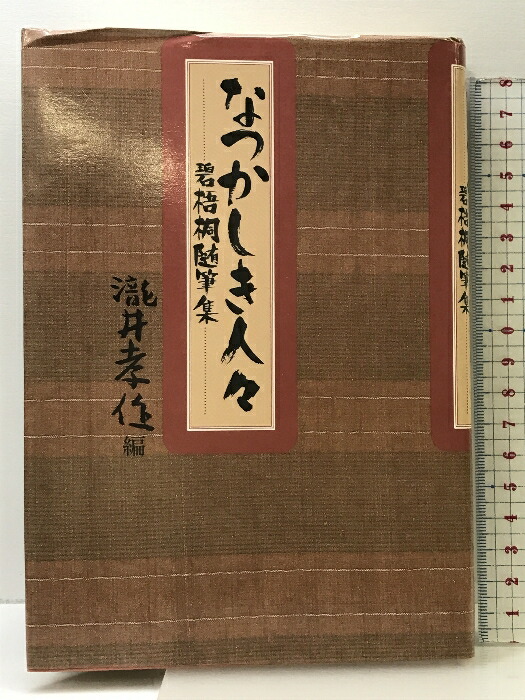 なつかしき人々
碧梧桐随筆集
瀧井孝作 編
碧梧桐随筆集
8
7
6
5
4
3
2
1
0
9
8
7
6
5
4
3
2
1